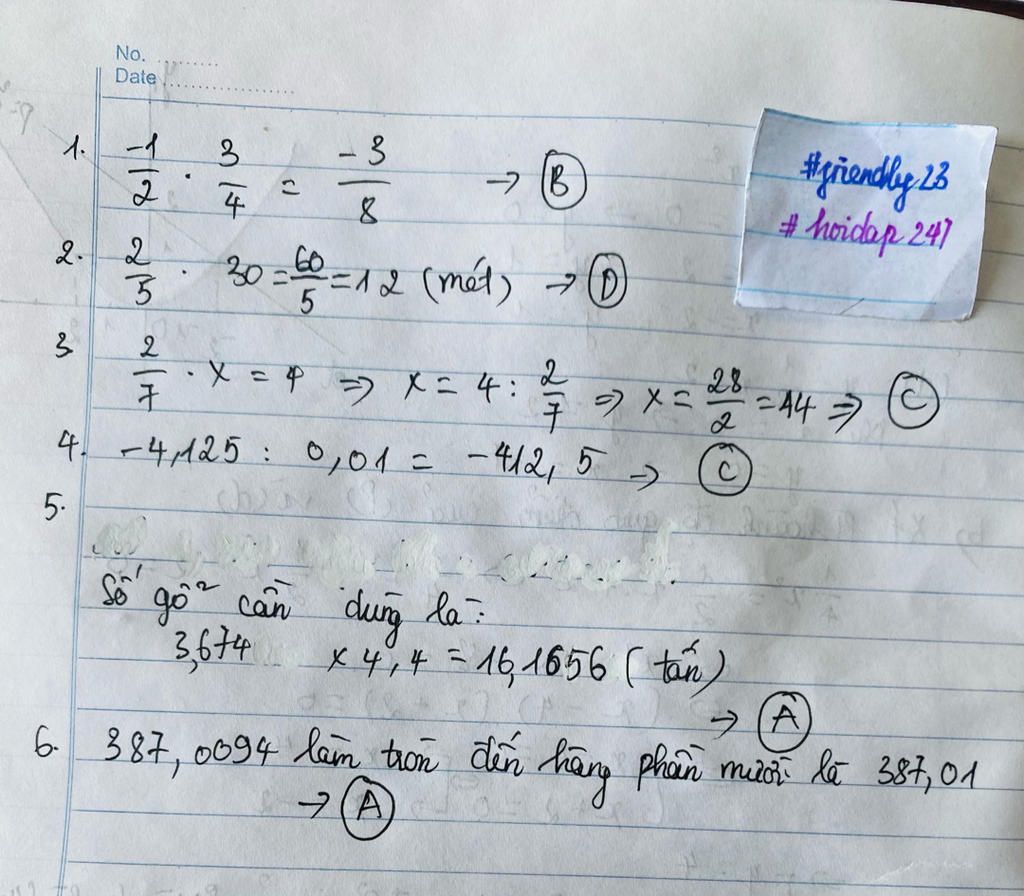 No. ..........
Date ....................
#friendly23
# hoidap 247
1. -1/2 · 3/4 = -3/8 → B
2. 2/5 · 30 = 60/5 = 12 (mét) → D
3 2/7 · x = 4 => x = 4 : 2/7 => x = 28/2 = 14 => C
4. -4,125 : 0,01 = -412,5 → C
5.
Số gỗ cần dùng là:
3,674 x 4,4 = 16,1656 (tấn)
→ A
6. 387,0094 làm tròn đến hàng phần mười là 387,01
→ A